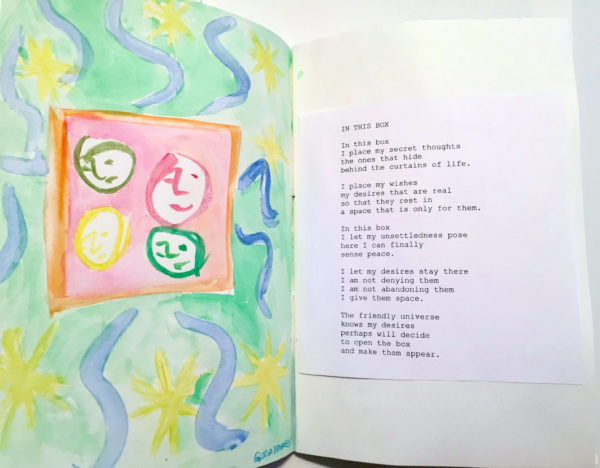 IN THIS BOX
In this box
I place my secret thoughts
the ones that hide
behind the curtains of life.
I place my wishes
my desires that are real
so that they rest in
a space that is only for them.
In this box
I let my unsettledness pose
here I can finally
sense peace.
I let my desires stay there
I am not denying them
I am not abandoning them
I give them space.
The friendly universe
knows my desires
perhaps will decide
to open the box
and make them appear.